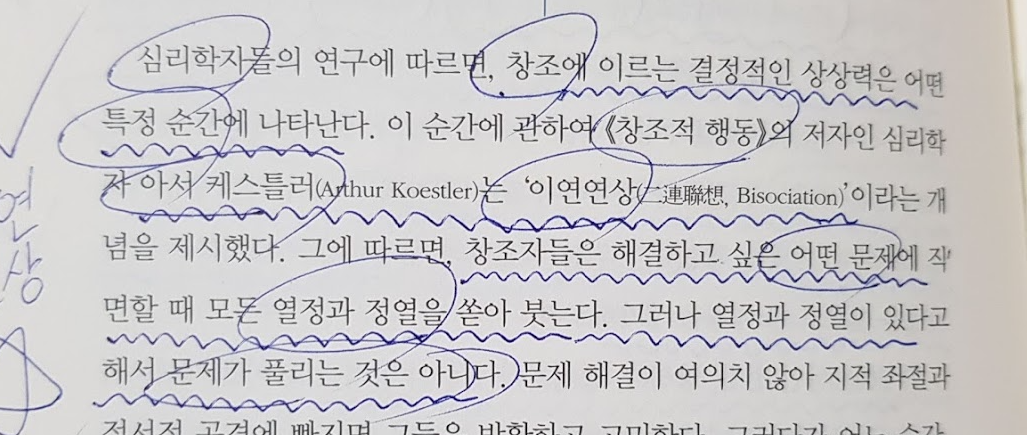 심리학자들의 연구에 따르면, 창조에 이르는 결정적인 상상력은 어떤
특정 순간에 나타난다. 이 순간에 관하여 《창조적 행동》의 저자인 심리학
자 아서 케스틀러(Arthur Koestler)는 ‘이연연상(二連聯想, Bisociation)’이라는 개
념을 제시했다. 그에 따르면, 창조자들은 해결하고 싶은 어떤 문제에 직
면할 때 모든 열정과 정열을 쏟아 붓는다. 그러나 열정과 정열이 있다고
해서 문제가 풀리는 것은 아니다. 문제 해결이 여의치 않아 지적 좌절과
연
상